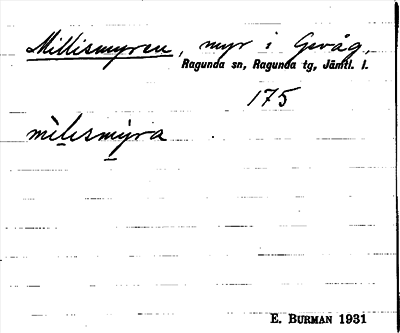 Millismyren, myr i Gevåg,
Ragunda sn, Ragunda tg, Jämtl. l.
175
mìlısmy̌ra
E. BURMAN 1931